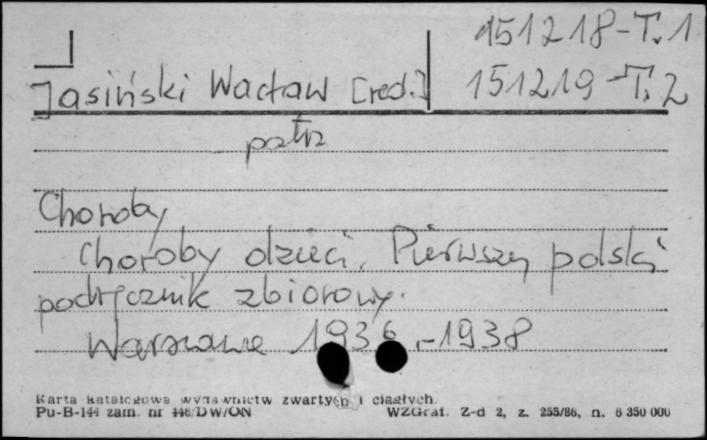 151218-T.1
Jasiński Wacław [red.] 151219-T.2
patrz
Choroby
Choroby dzieci. Pierwszy polski
podręcznik zbiorowy.
Warszawa 1936-1938
Karta katalogowa wydawnictw zwartych i ciągłych.
Pu-B-144 zam. nr 446/DW/ON WZGraf. Z-d 2, z. 255/86, n. 6 350 000